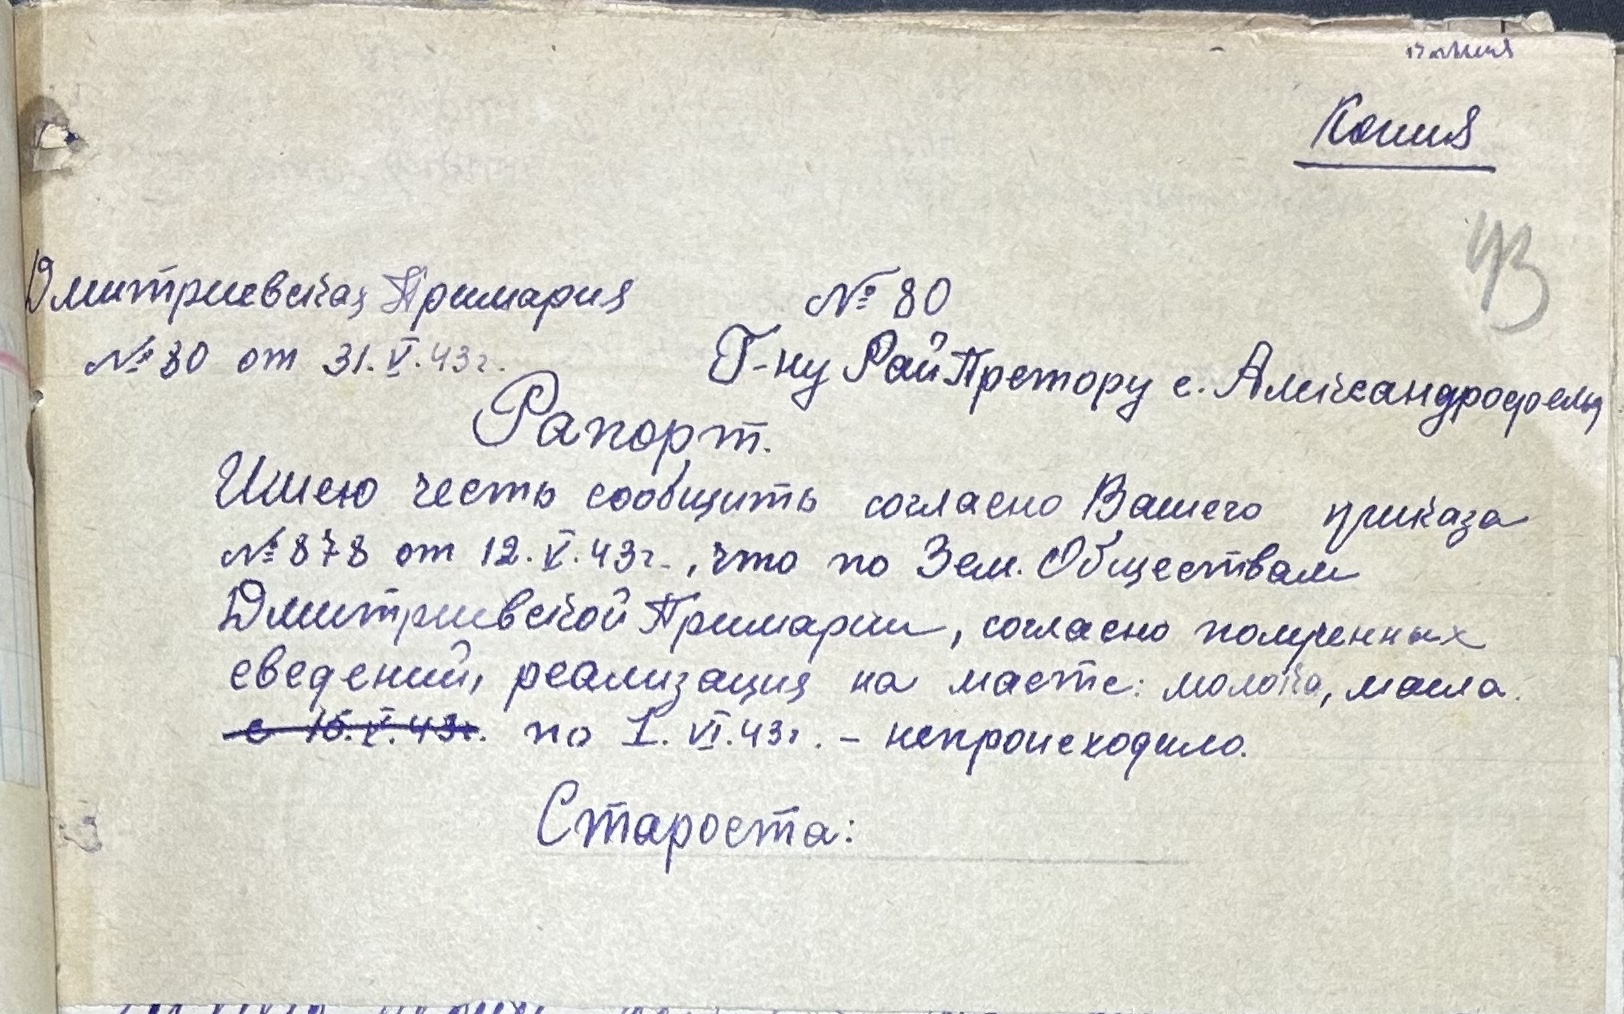 Копия
43
Дмитриевская Примария
№ 80
№ 80 от 31.V.43г.
Г-ну РайПретору с. Александрофельд
Рапорт.
Имею честь сообщить согласно Вашего приказа
№ 878 от 12.V.43г., что по Зем. Обществам
Дмитриевской Примарии, согласно полученных
сведений, реализация на масте: молока, масла.
с 15.V.43г. по 1.VI.43г. – непроисходило.
Староста: